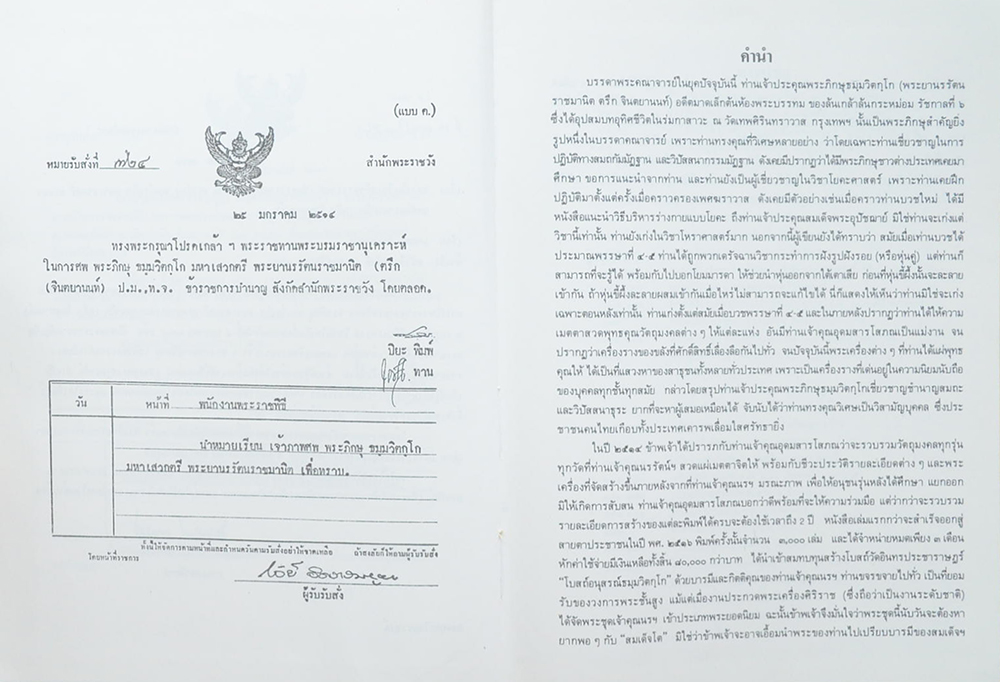 (แบบ ค.)
หมายรับสั่งที่ ๗๒๔
สำนักพระราชวัง
๒๕ มกราคม ๒๕๑๔
ทรงพระกรุณาโปรดเกล้า ฯ พระราชทานพระบรมราชานุเคราะห์
ในการศพ พระภิกษุ ธมฺมวิตกฺโก มหาเสวกตรี พระยานรรัตนราชมานิต (ตรึก
(จินตยานนท์) ป.ม.,ท.จ. ข้าราชการบำนาญ สังกัดสำนักพระราชวัง โดยตลอด.
ปิยะ พิมพ์
ทาน
วัน หน้าที่ พนักงานพระราชพิธี
นำหมายเรียน เจ้าภาพศพ พระภิกษุ ธมฺมวิตกฺโก
มหาเสวกตรี พระยานรรัตนราชมานิต เพื่อทราบ.
ทั้งนี้ให้จัดการตามหน้าที่และกำหนดวันตามรับสั่งอย่าให้ขาดเหลือ ถ้าสงสัยก็ให้ถามผู้รับรับสั่ง
โดยหน้าที่ราชการ
ผู้รับรับสั่ง
คำนำ
บรรดาพระคณาจารย์ในยุคปัจจุบันนี้ ท่านเจ้าประคุณพระภิกษุธมฺมวิตกฺโก (พระยานรรัตน
ราชมานิต ตรึก จินตยานนท์) อดีตมาดเล็กต้นห้องพระบรรทม ของล้นเกล้าล้นกระหม่อม รัชกาลที่ ๖
ซึ่งได้อุปสมบทอุทิศชีวิตในร่มกาสาวะ ณ วัดเทพศิรินทราวาส กรุงเทพฯ นั้นเป็นพระภิกษุสำคัญยิ่ง
รูปหนึ่งในบรรดาคณาจารย์ เพราะท่านทรงคุณที่วิเศษหลายอย่าง ว่าโดยเฉพาะท่านเชี่ยวชาญในการ
ปฏิบัติทางสมถกัมมัฏฐาน และวิปัสสนากรรมมัฏฐาน ดังเคยมีปรากฏว่าได้มีพระภิกษุชาวต่างประเทศเคยมา
ศึกษา ขอการแนะนำจากท่าน และท่านยังเป็นผู้เชี่ยวชาญในวิชาโยคะศาสตร์ เพราะท่านเคยฝึก
ปฏิบัติมาตั้งแต่ครั้งเมื่อคราวครองเพศฆราวาส ดังเคยมีตัวอย่างเช่นเมื่อคราวท่านบวชใหม่ ได้มี
หนังสือแนะนำวิธีบริหารร่างกายแบบโยคะ ถึงท่านเจ้าประคุณสมเด็จพระอุปัชฌาย์ มิใช่ท่านจะเก่งแต่
วิชานี้เท่านั้น ท่านยังเก่งในวิชาโหราศาสตร์มาก นอกจากนี้ผู้เขียนยังได้ทราบว่า สมัยเมื่อท่านบวชได้
ประมาณพรรษาที่ ๔-๕ ท่านได้ถูกพวกเดรัจฉานวิชากระทำการฝังรูปฝังรอย (หรือหุ่นคู่) แต่ท่านก็
สามารถที่จะรู้ได้ พร้อมกับไปบอกโยมมารดา ให้ช่วยนำหุ่นออกจากใต้เตาเสีย ก่อนที่หุ่นขี้ผึ้งนั้นจะละลาย
เข้ากัน ถ้าหุ่นขี้ผึ้งละลายผสมเข้ากันเมื่อไหร่ไม่สามารถจะแก้ไขได้ นี่ก็แสดงให้เห็นว่าท่านมิใช่จะเก่ง
เฉพาะตอนหลังเท่านั้น ท่านเก่งตั้งแต่สมัยเมื่อบวชพรรษาที่ ๔-๕ และในภายหลังปรากฏว่าท่านได้ให้ความ
เมตตาสวดพุทธคุณวัตถุมงคลต่าง ๆ ให้แต่ละแห่ง อันมีท่านเจ้าคุณอุดมสารโสภณเป็นแม่งาน จน
ปรากฏว่าเครื่องรางของขลังที่ศักดิ์สิทธิ์เลื่องลือกันไปทั่ว จนปัจจุบันนี้พระเครื่องต่าง ๆ ที่ท่านได้แผ่พุทธ
คุณให้ ได้เป็นที่แสวงหาของสาธุชนทั้งหลายทั่วประเทศ เพราะเป็นเครื่องรางที่เด่นอยู่ในความนิยมนับถือ
ของบุคคลทุกชั้นทุกสมัย กล่าวโดยสรุปท่านเจ้าประคุณพระภิกษุธมฺมวิตกฺโกเชี่ยวชาญชำนาญสมถะ
และวิปัสสนาธุระ ยากที่จะหาผู้เสมอเหมือนได้ จับนับได้ว่าท่านทรงคุณวิเศษเป็นวิสามัญบุคคล ซึ่งประ
ชาชนคนไทยเกือบทั้งประเทศเคารพเลื่อมใสศรัทธายิ่ง
ในปี ๒๕๑๔ ข้าพเจ้าได้ปรารภกับท่านเจ้าคุณอุดมสารโสภณว่าจะรวบรวมวัตถุมงคลทุกรุ่น
ทุกวัดที่ท่านเจ้าคุณนรรัตน์ฯ สวดแผ่เมตตาจิตให้ พร้อมกับชีวะประวัติรายละเอียดต่าง ๆ และพระ
เครื่องที่จัดสร้างขึ้นภายหลังจากที่ท่านเจ้าคุณนรฯ มรณะภาพ เพื่อให้อนุชนรุ่นหลังได้ศึกษา แยกออก
มิให้เกิดการสับสน ท่านเจ้าคุณอุดมสารโสภณบอกว่าดีพร้อมที่จะให้ความร่วมมือ แต่ว่ากว่าจะรวบรวม
รายละเอียดการสร้างของแต่ละพิมพ์ได้ครบจะต้องใช้เวลาถึง 2 ปี หนังสือเล่มแรกกว่าจะสำเร็จออกสู่
สายตาประชาชนในปี พศ. ๒๕๑๖ พิมพ์ครั้งนั้นจำนวน ๓,๐๐๐ เล่ม และได้จำหน่ายหมดเพียง ๓ เดือน
หักค่าใช้จ่ายมีเงินเหลือทั้งสิ้น ๔๐,๐๐๐ กว่าบาท ได้นำเข้าสมทบทุนสร้างโบสถ์วัดอินทรประชาราษฎร์
"โบสถ์อนุสรณ์ธมฺมวิตกฺโก" ด้วยบารมีและกิตติคุณของท่านเจ้าคุณนรฯ ท่านขจรขจายไปทั่ว เป็นที่ยอม
รับของวงการพระชั้นสูง แม้แต่เมื่องานประกวดพระเครื่องศิริราช (ซึ่งถือว่าเป็นงานระดับชาติ)
ได้จัดพระชุดเจ้าคุณนรฯ เข้าประเภทพระยอดนิยม ฉะนั้นข้าพเจ้าจึงมั่นใจว่าพระชุดนี้นับวันจะต้องหา
ยากพอ ๆ กับ "สมเด็จโต" มิใช่ว่าข้าพเจ้าจะอาจเอื้อมนำพระของท่านไปเปรียบบารมีของสมเด็จฯ